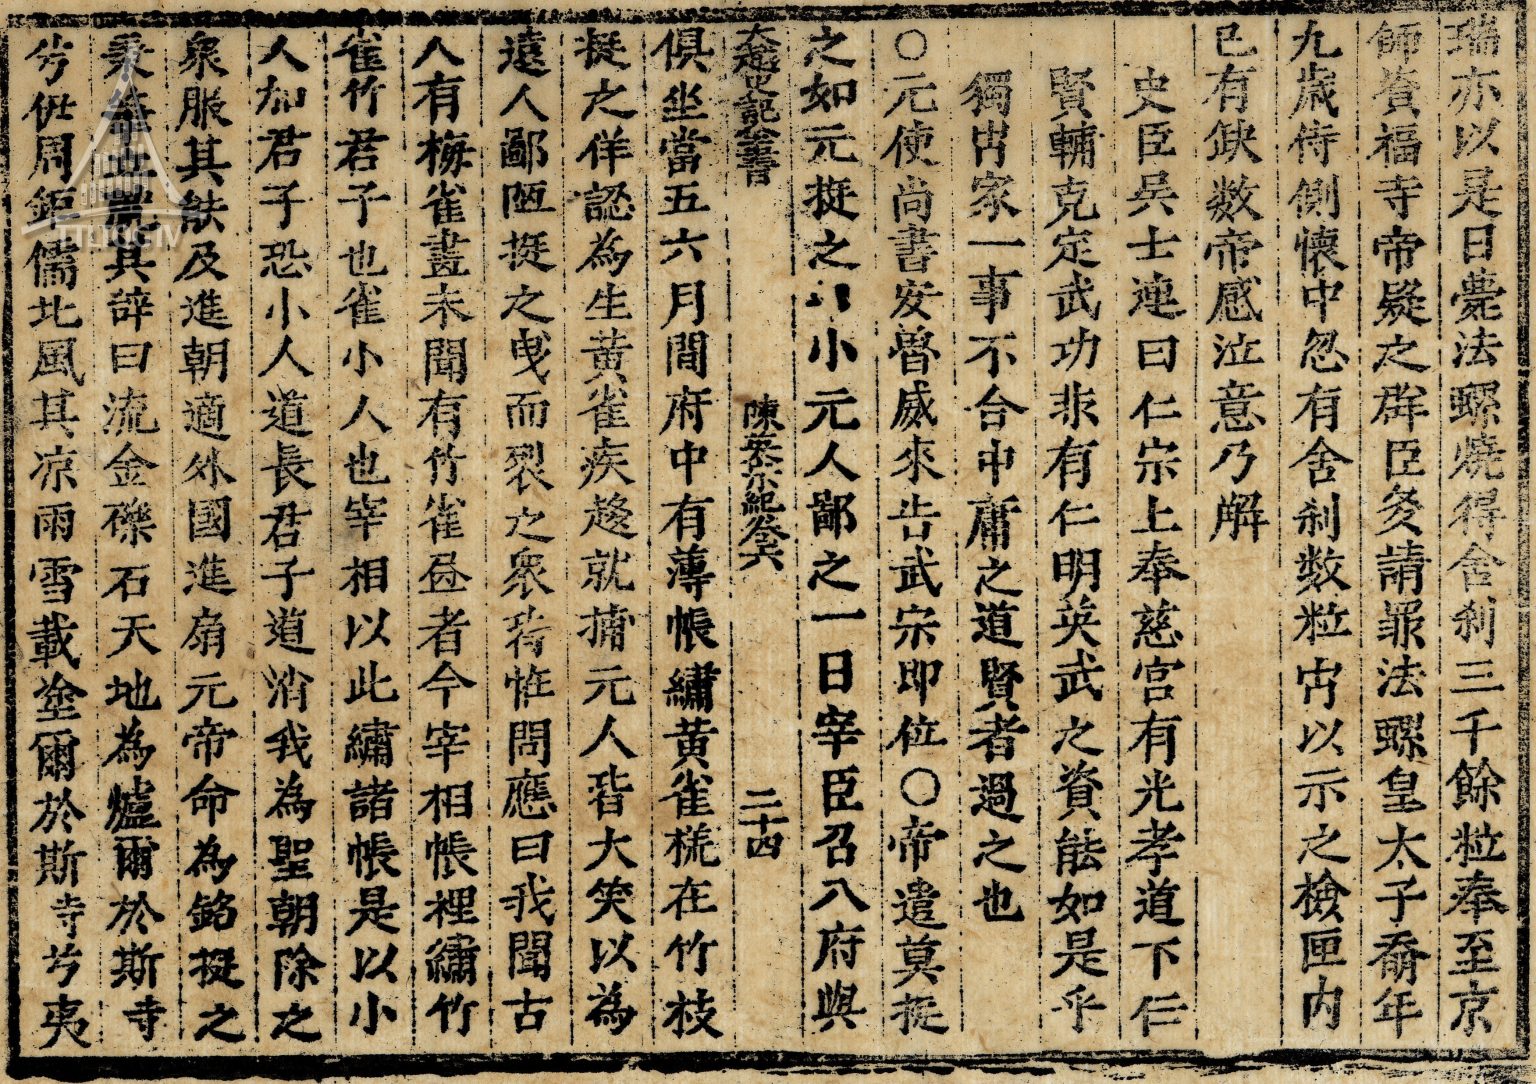 瑞亦以是日薨法螺燒得舍利三千餘粒奉至京
師資福寺帝疑之群臣多請罪法螺皇太子奣年
九歲侍側懷中忽有舍利数粒出以示之檢匣内
已有缺数帝感泣意乃解
史臣吳士連曰仁宗上奉慈宮有光孝道下仁
賢輔克定武功非有仁明英武之資能如是乎
獨出家一事不合中庸之道賢者過之也
○元使尚書安魯威來告武宗即位○帝遣莫挺
之如元挺之小元人鄙之一日宰臣召入府與
大越史記全書
陳英宗紀卷六
二十四
俱坐當五六月間府中有薄帳繡黄雀㧡在竹枝
挺之佯認為生黄雀疾趍就捕元人皆大笑以為
遠人鄙陋挺之曳而裂之衆皆恠問應曰我聞古
人有梅雀畫未聞有竹雀𦘕者今宰相帳裡繡竹
雀竹君子也雀小人也宰相以此繡諸帳是以小
人加君子恐小人道長君子道消我為聖朝除之
衆服其䏻及進朝適外國進扇元帝命為銘挺之
秉其辞曰流金礫石天地為爐爾於斯寺
兮伊周鉅儒北風其凉雨雪載塗爾於斯寺兮夷